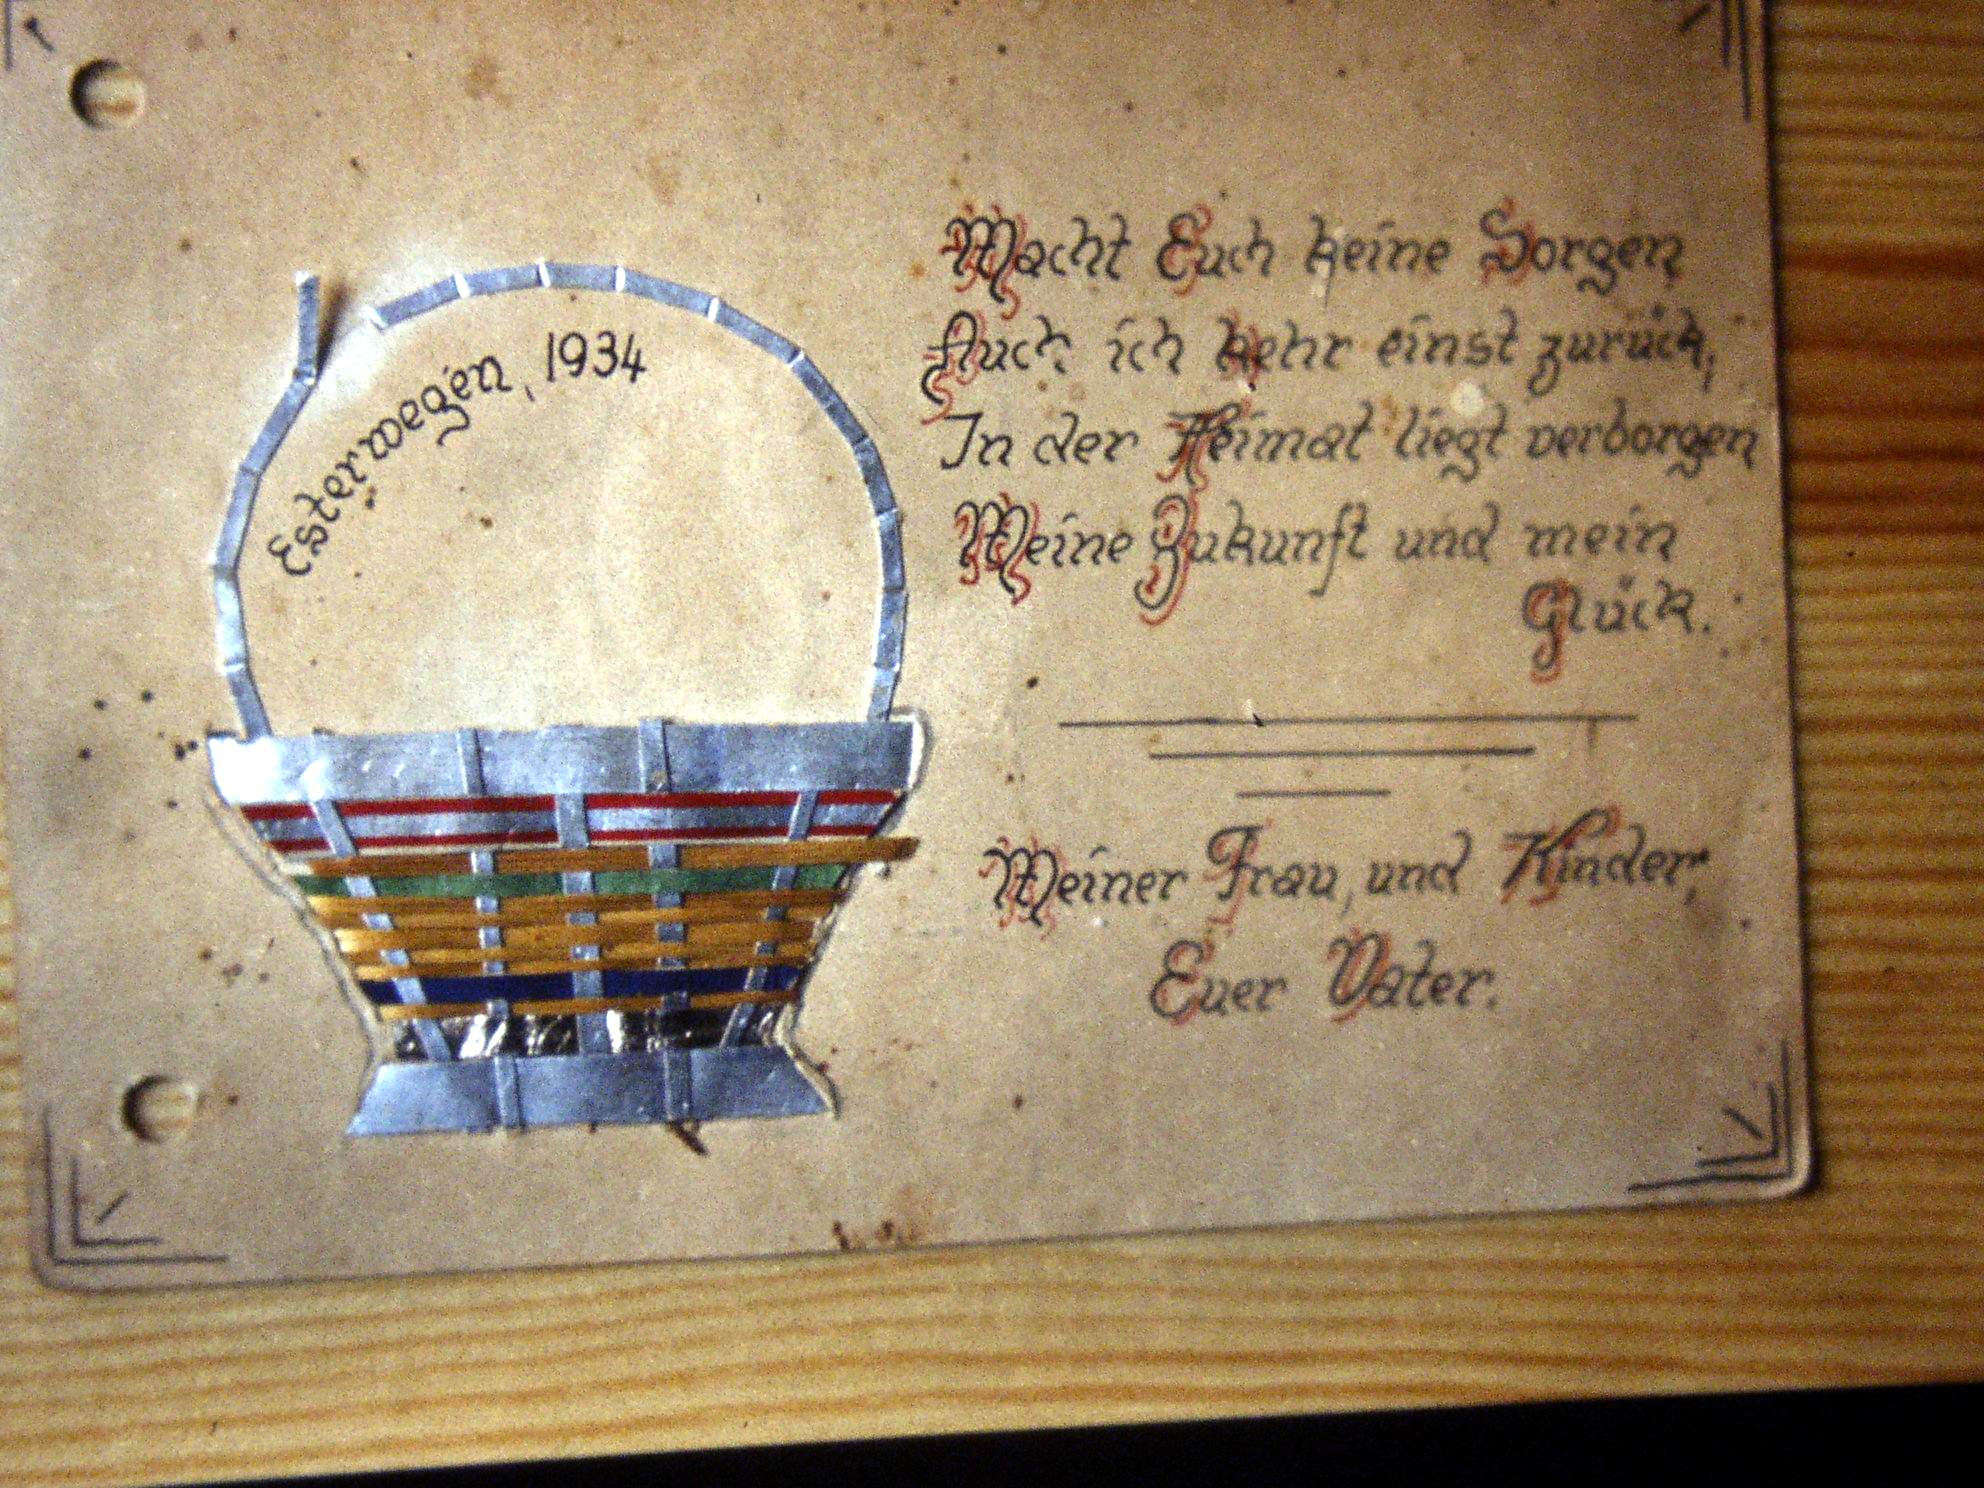 Esterwegen, 1934
Macht Euch keine Sorgen
Auch ich kehr einst zurück,
In der Heimat liegt verborgen
Meine Zukunft und mein
Glück.
Meiner Frau, und Kinder,
Euer Vater.